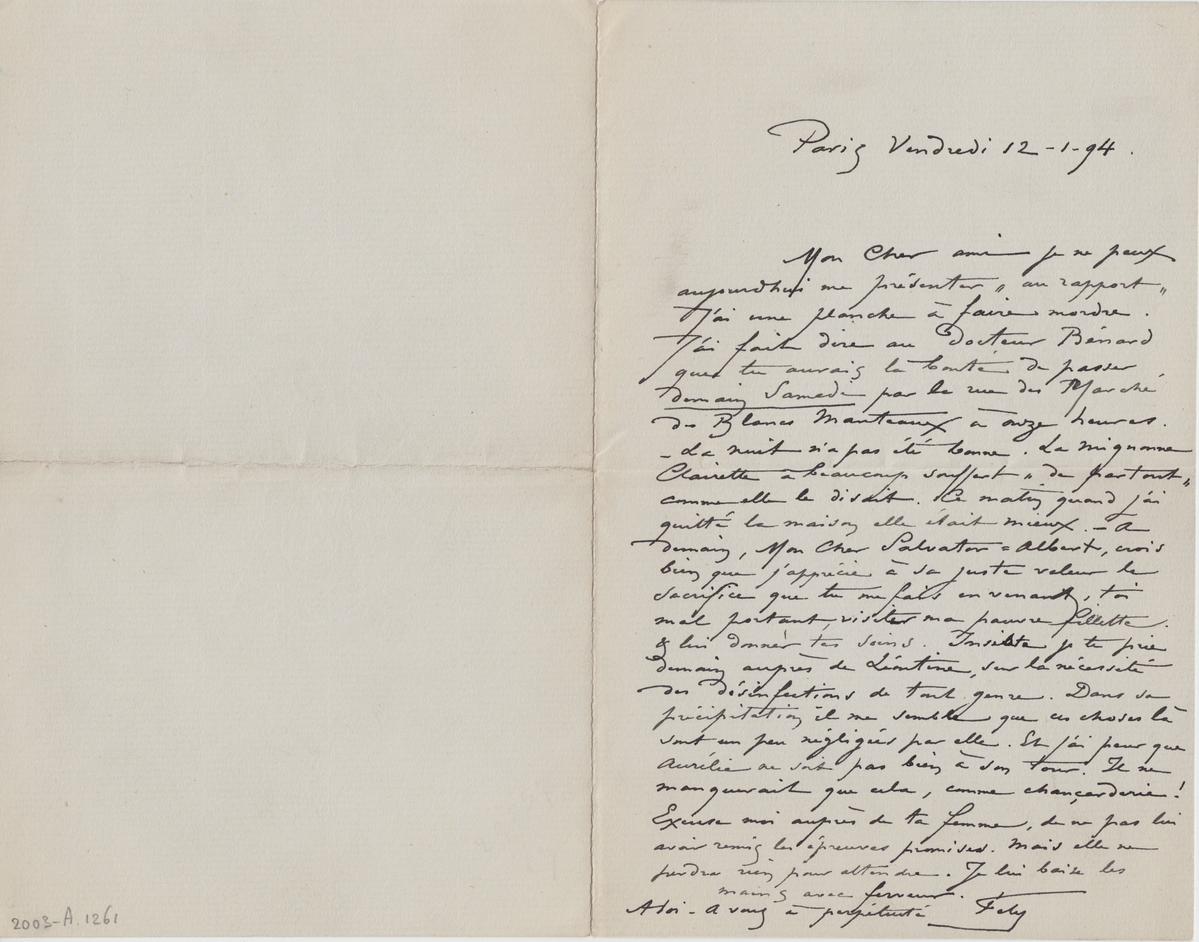 Paris Vendredi 12-1-94.
Mon Cher ami je ne peux
aujourd'hui me présenter „ au rapport „
J'ai une planche à faire mordre.
J'ai fait dire au Docteur Bénard
que tu aurais la bonté de passer
demain Samedi par la rue du Marché
des Blancs Manteaux à onze heures.
– La nuit n'a pas été bonne. La mignonne
Clairette a beaucoup souffert „ de partout „
comme elle le disait. Ce matin quand j'ai
quitté la maison elle était mieux. – A
demain, Mon Cher Salvator=Albert, crois
bien que j'apprécie à sa juste valeur le
sacrifice que tu me fais en venant, toi
mal portant, visiter ma pauvre fillette
& lui donner tes soins. Insiste je te prie
demain auprès de Léontine, sur la nécessité
des désinfections de tout genre. Dans sa
précipitation il me semble que ces choses là
sont un peu négligées par elle. Et j'ai peur que
Aurélie ne soit pas bien à son tour. Il ne
manquerait que cela, comme chançarderie!
Excuse moi auprès de ta femme, de ne pas lui
avoir remis les épreuves promises. Mais elle ne
perdra rien pour attendre. Je lui baise les
mains avec ferveur.
A toi – A vous à perpétuité Fély
2003-A.1261